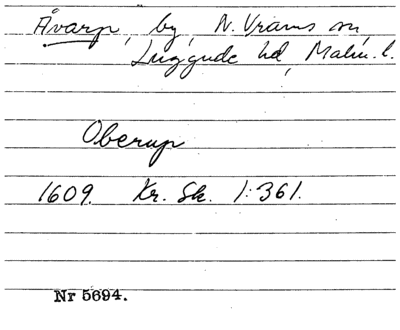 Åvarp, by, N. Vrams sn,
Luggude hd, Malm. l.
Oberup
1609. Kr. Sk. 1:361.
Nr 5694.